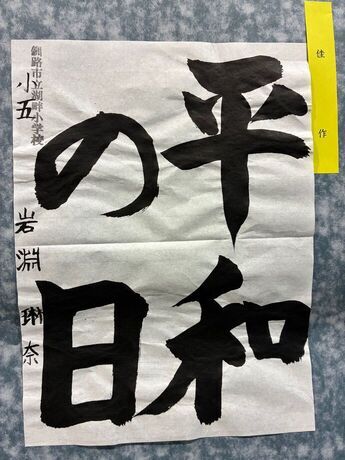 佳作
平和
の日
釧路市立湖畔小学校
小五 岩淵琳奈